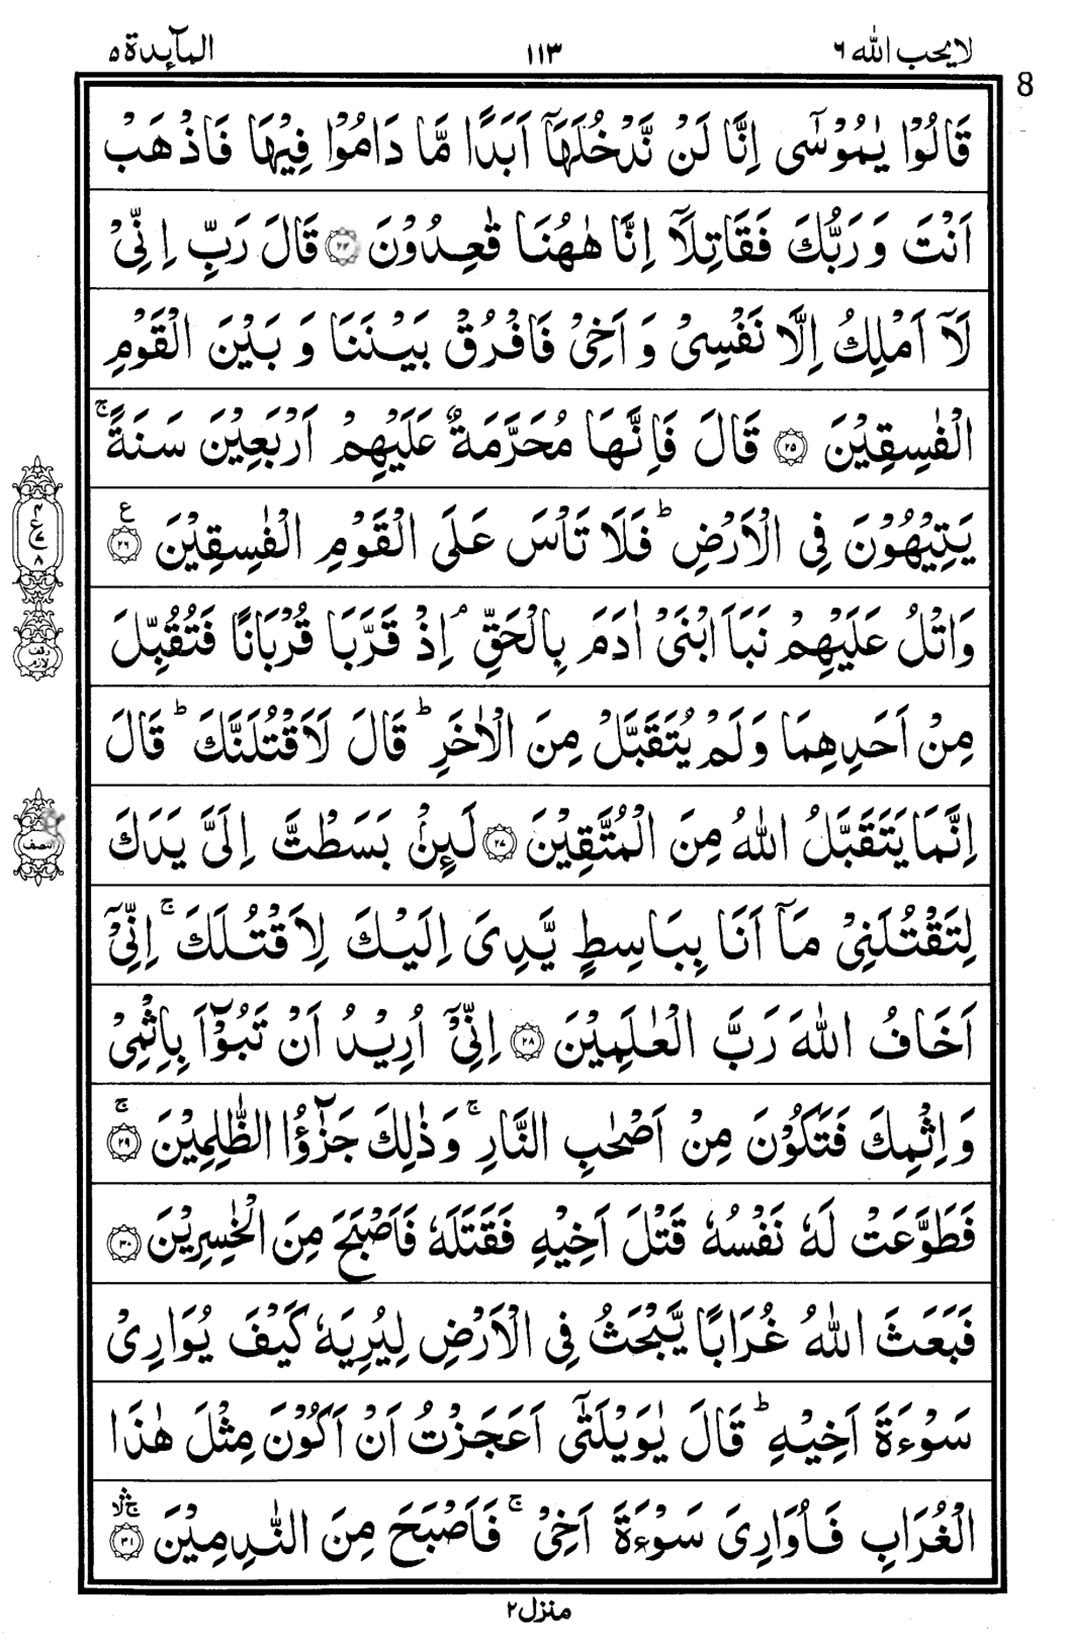 لا يحب الله ٦
١١٣
المآئدة ٥
8
قَالُوْا يٰمُوْسٰٓى اِنَّا لَنْ نَّدْخُلَهَاۤ اَبَدًا مَّا دَامُوْا فِيْهَا فَاذْهَبْ
اَنْتَ وَ رَبُّكَ فَقَاتِلَاۤ اِنَّا هٰهُنَا قٰعِدُوْنَ ۝٢٤ قَالَ رَبِّ اِنِّيْ
لَاۤ اَمْلِكُ اِلَّا نَفْسِيْ وَ اَخِيْ فَافْرُقْ بَيْنَنَا وَ بَيْنَ الْقَوْمِ
الْفٰسِقِيْنَ ۝٢٥ قَالَ فَاِنَّهَا مُحَرَّمَةٌ عَلَيْهِمْ اَرْبَعِيْنَ سَنَةً ۚ
يَتِيْهُوْنَ فِي الْاَرْضِ ؕ فَلَا تَاْسَ عَلَى الْقَوْمِ الْفٰسِقِيْنَ ۝٢٦ ع
وَاتْلُ عَلَيْهِمْ نَبَاَ ابْنَيْ اٰدَمَ بِالْحَقِّ ۘ اِذْ قَرَّبَا قُرْبَانًا فَتُقُبِّلَ
مِنْ اَحَدِهِمَا وَلَمْ يُتَقَبَّلْ مِنَ الْاٰخَرِ ؕ قَالَ لَاَقْتُلَنَّكَ ؕ قَالَ
اِنَّمَا يَتَقَبَّلُ اللّٰهُ مِنَ الْمُتَّقِيْنَ ۝٢٧ لَئِنْۢ بَسَطْتَّ اِلَيَّ يَدَكَ
لِتَقْتُلَنِيْ مَاۤ اَنَا بِبَاسِطٍ يَّدِيَ اِلَيْكَ لِاَقْتُلَكَ ۚ اِنِّيْۤ
اَخَافُ اللّٰهَ رَبَّ الْعٰلَمِيْنَ ۝٢٨ اِنِّيْۤ اُرِيْدُ اَنْ تَبُوْٓاَ بِاِثْمِيْ
وَ اِثْمِكَ فَتَكُوْنَ مِنْ اَصْحٰبِ النَّارِ ۚ وَذٰلِكَ جَزٰٓؤُا الظّٰلِمِيْنَ ۝٢٩ ۚ
فَطَوَّعَتْ لَهٗ نَفْسُهٗ قَتْلَ اَخِيْهِ فَقَتَلَهٗ فَاَصْبَحَ مِنَ الْخٰسِرِيْنَ ۝٣٠
فَبَعَثَ اللّٰهُ غُرَابًا يَّبْحَثُ فِي الْاَرْضِ لِيُرِيَهٗ كَيْفَ يُوَارِيْ
سَوْءَةَ اَخِيْهِ ؕ قَالَ يٰوَيْلَتٰۤى اَعَجَزْتُ اَنْ اَكُوْنَ مِثْلَ هٰذَا
الْغُرَابِ فَاُوَارِيَ سَوْءَةَ اَخِيْ ۚ فَاَصْبَحَ مِنَ النّٰدِمِيْنَ ۝٣١ ج ۛ لا
٤
ع
٧
٨
وقف
لازم
النصف
منزل ٢